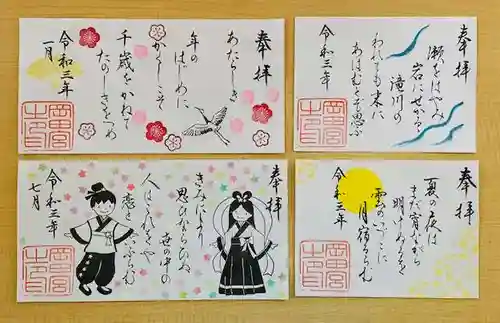 奉拝
あたらしき
年の
はじめに
かくしこそ
千歳をかねて
たのしきをつめ
令和三年
一月
奉拝
瀬をはやみ
岩にせかるる
滝川の
われても末に
あはむとぞ思ふ
令和三年
奉拝
きみにより
思ひならひぬ
世の中の
人はこれをや
恋といふらむ
令和三年
七月
奉拝
夏の夜は
まだ宵ながら
明けぬるを
雲のいづこに
月宿るらむ
令和三年